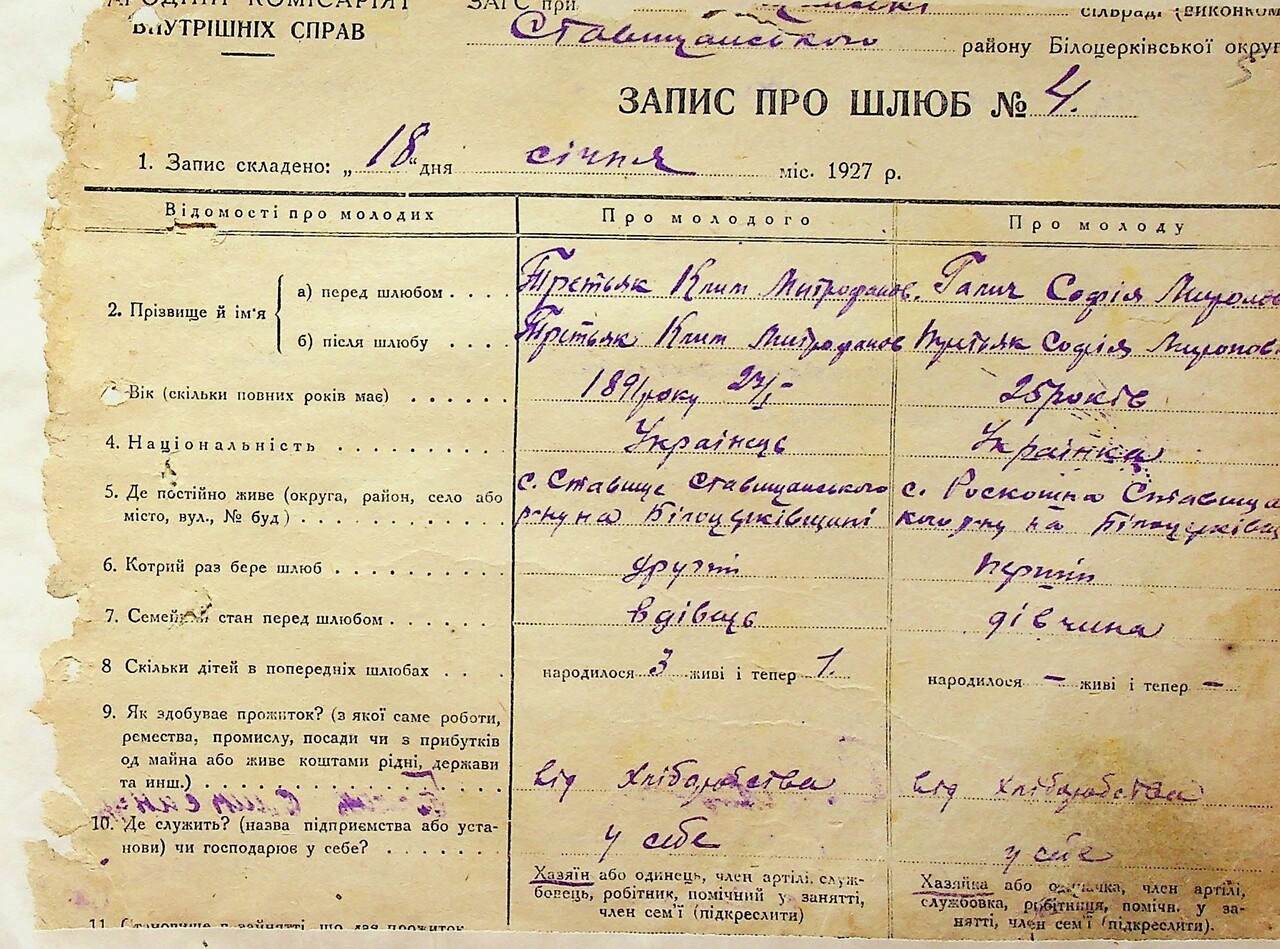 НАРОДНІЙ КОМІСАРІЯТ
ЗАГС при сільраді (виконком
ВНУТРІШНІХ СПРАВ
Ставищанського району Білоцерківської округ
ЗАПИС ПРО ШЛЮБ № 4.
1. Запис складено: „18“ дня січня міс. 1927 р.
Відомості про молодих
Про молодого
Про молоду
2. Прізвище й ім'я
а) перед шлюбом
Третьяк Клим Митрофанов.
Галич Софія Миронов
б) після шлюбу
Третьяк Клим Митрофанов
Третьяк Софія Миронов
Вік (скільки повних років має)
1891 року
25 років
4. Національність
Українець
Українка
5. Де постійно живе (округа, район, село або
місто, вул., № буд)
с. Ставище Ставищанського
р-ну на Білоцерківщині
с. Роскошна Ставища
кого р-ну на Білоцерківщ
6. Котрий раз бере шлюб
другий
перший
7. Семейний стан перед шлюбом
вдівець
дівчина
8 Скільки дітей в попередніх шлюбах
народилося 3 живі і тепер 1.
народилося – живі і тепер –
9. Як здобуває прожиток? (з якої саме роботи,
ремества, промислу, посади чи з прибутків
од майна або живе коштами рідні, держави
та инш.)
від хліборобства
від хліборобства
10. Де служить? (назва підприємства або уста-
нови) чи господарює у себе?
у себе
у себе
Хазяїн або одинець, член артілі, служ-
бовець, робітник, помічний у занятті,
член сем'ї (підкреслити)
Хазяйка або одиначка, член артілі,
службовка, робітниця, помічн. у за-
нятті, член сем'ї (підкреслити).
11